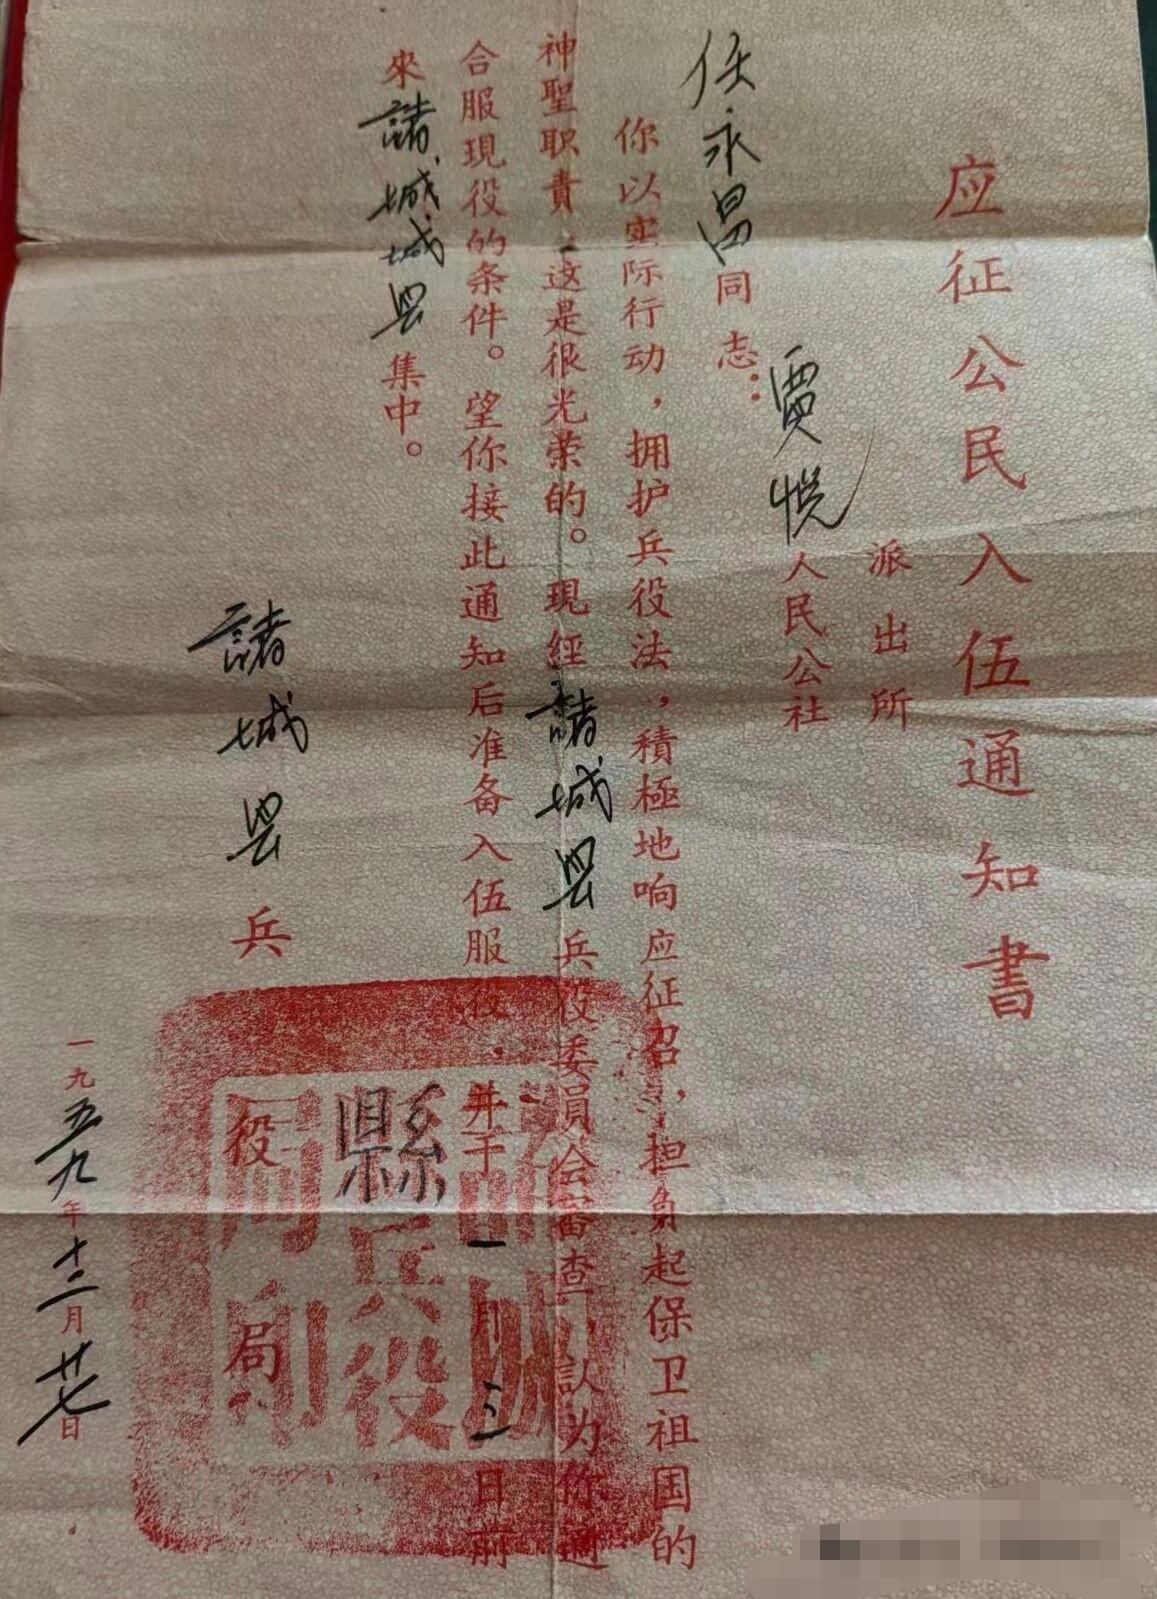 应征公民入伍通知書
派出所
賈悦人民公社
任永昌同志：
你以实际行动，拥护兵役法，積極地响应征召，担負起保卫祖国的
神聖职責，这是很光荣的。現經諸城县兵役委員会審查，認为你適
合服現役的条件。望你接此通知后准备入伍服役，并于一月三日前
來諸城城县集中。
諸城县兵役局
一九五九年十二月廿七日
縣兵役
局印